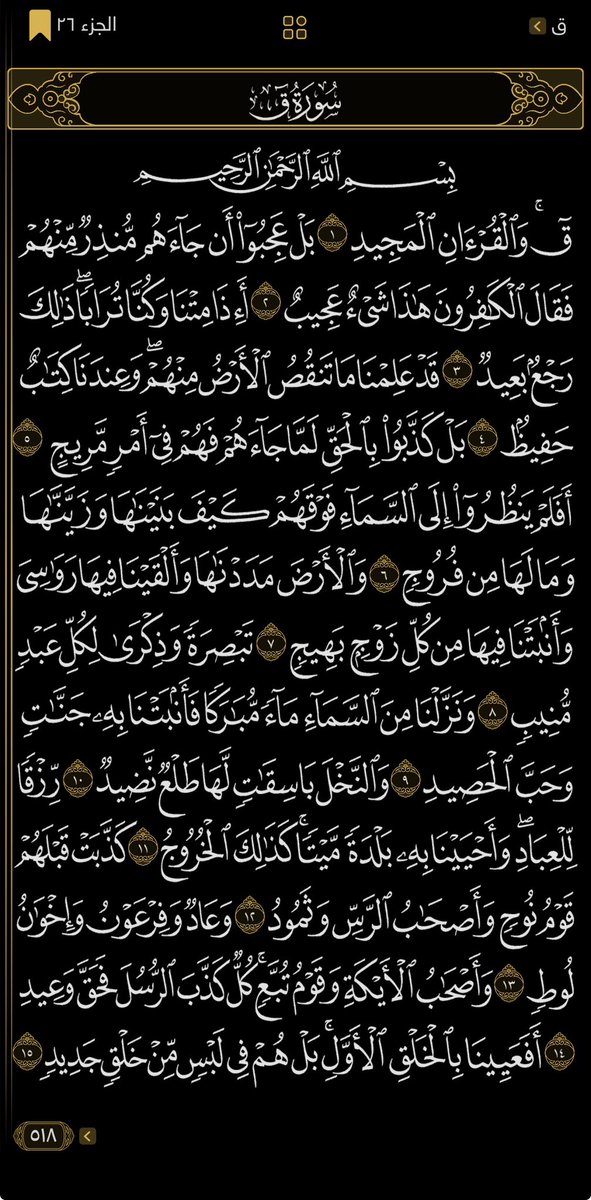 ق
الجزء ٢٦
سُورَةُ قٓ
بِسْمِ ٱللَّهِ ٱلرَّحْمَٰنِ ٱلرَّحِيمِ
قٓۚ وَٱلْقُرْءَانِ ٱلْمَجِيدِ ١ بَلْ عَجِبُوٓا۟ أَن جَآءَهُم مُّنذِرٌ مِّنْهُمْ
فَقَالَ ٱلْكَٰفِرُونَ هَٰذَا شَىْءٌ عَجِيبٌ ٢ أَءِذَا مِتْنَا وَكُنَّا تُرَابًاۖ ذَٰلِكَ
رَجْعٌۢ بَعِيدٌ ٣ قَدْ عَلِمْنَا مَا تَنقُصُ ٱلْأَرْضُ مِنْهُمْۖ وَعِندَنَا كِتَٰبٌ
حَفِيظٌۢ ٤ بَلْ كَذَّبُوا۟ بِٱلْحَقِّ لَمَّا جَآءَهُمْ فَهُمْ فِىٓ أَمْرٍ مَّرِيجٍ ٥
أَفَلَمْ يَنظُرُوٓا۟ إِلَى ٱلسَّمَآءِ فَوْقَهُمْ كَيْفَ بَنَيْنَٰهَا وَزَيَّنَّٰهَا
وَمَا لَهَا مِن فُرُوجٍ ٦ وَٱلْأَرْضَ مَدَدْنَٰهَا وَأَلْقَيْنَا فِيهَا رَوَٰسِىَ
وَأَنۢبَتْنَا فِيهَا مِن كُلِّ زَوْجٍۭ بَهِيجٍ ٧ تَبْصِرَةً وَذِكْرَىٰ لِكُلِّ عَبْدٍ
مُّنِيبٍ ٨ وَنَزَّلْنَا مِنَ ٱلسَّمَآءِ مَآءً مُّبَٰرَكًا فَأَنۢبَتْنَا بِهِۦ جَنَّٰتٍ
وَحَبَّ ٱلْحَصِيدِ ٩ وَٱلنَّخْلَ بَاسِقَٰتٍ لَّهَا طَلْعٌ نَّضِيدٌ ١٠ رِّزْقًا
لِّلْعِبَادِۖ وَأَحْيَيْنَا بِهِۦ بَلْدَةً مَّيْتًاۚ كَذَٰلِكَ ٱلْخُرُوجُ ١١ كَذَّبَتْ قَبْلَهُمْ
قَوْمُ نُوحٍ وَأَصْحَٰبُ ٱلرَّسِّ وَثَمُودُ ١٢ وَعَادٌ وَفِرْعَوْنُ وَإِخْوَٰنُ
لُوطٍ ١٣ وَأَصْحَٰبُ ٱلْأَيْكَةِ وَقَوْمُ تُبَّعٍۚ كُلٌّ كَذَّبَ ٱلرُّسُلَ فَحَقَّ وَعِيدِ
١٤ أَفَعَيِينَا بِٱلْخَلْقِ ٱلْأَوَّلِۚ بَلْ هُمْ فِى لَبْسٍ مِّنْ خَلْقٍ جَدِيدٍ ١٥
٥١٨